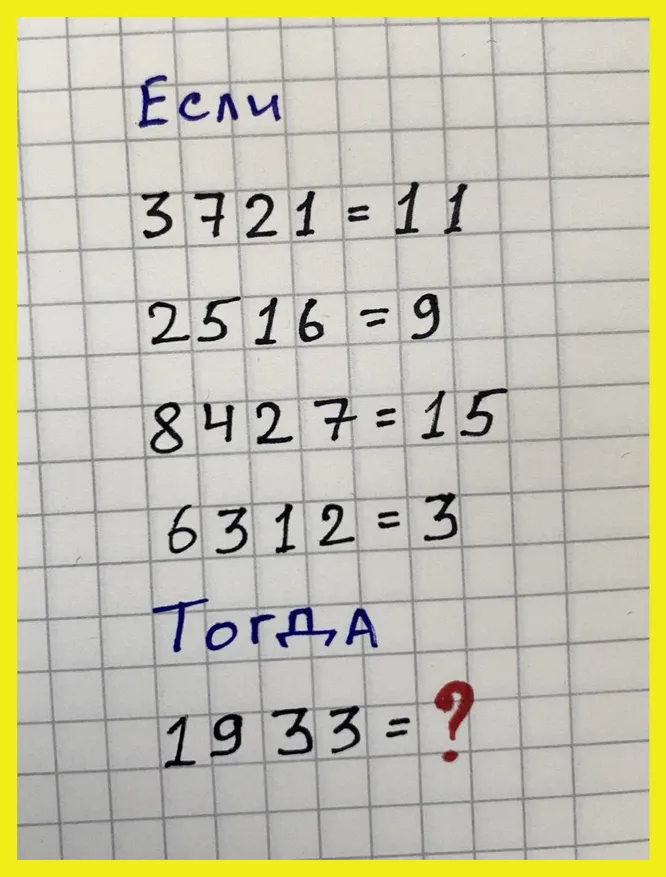 Если
3721=11
2516=9
8427=15
6312=3
Тогда
1933=?